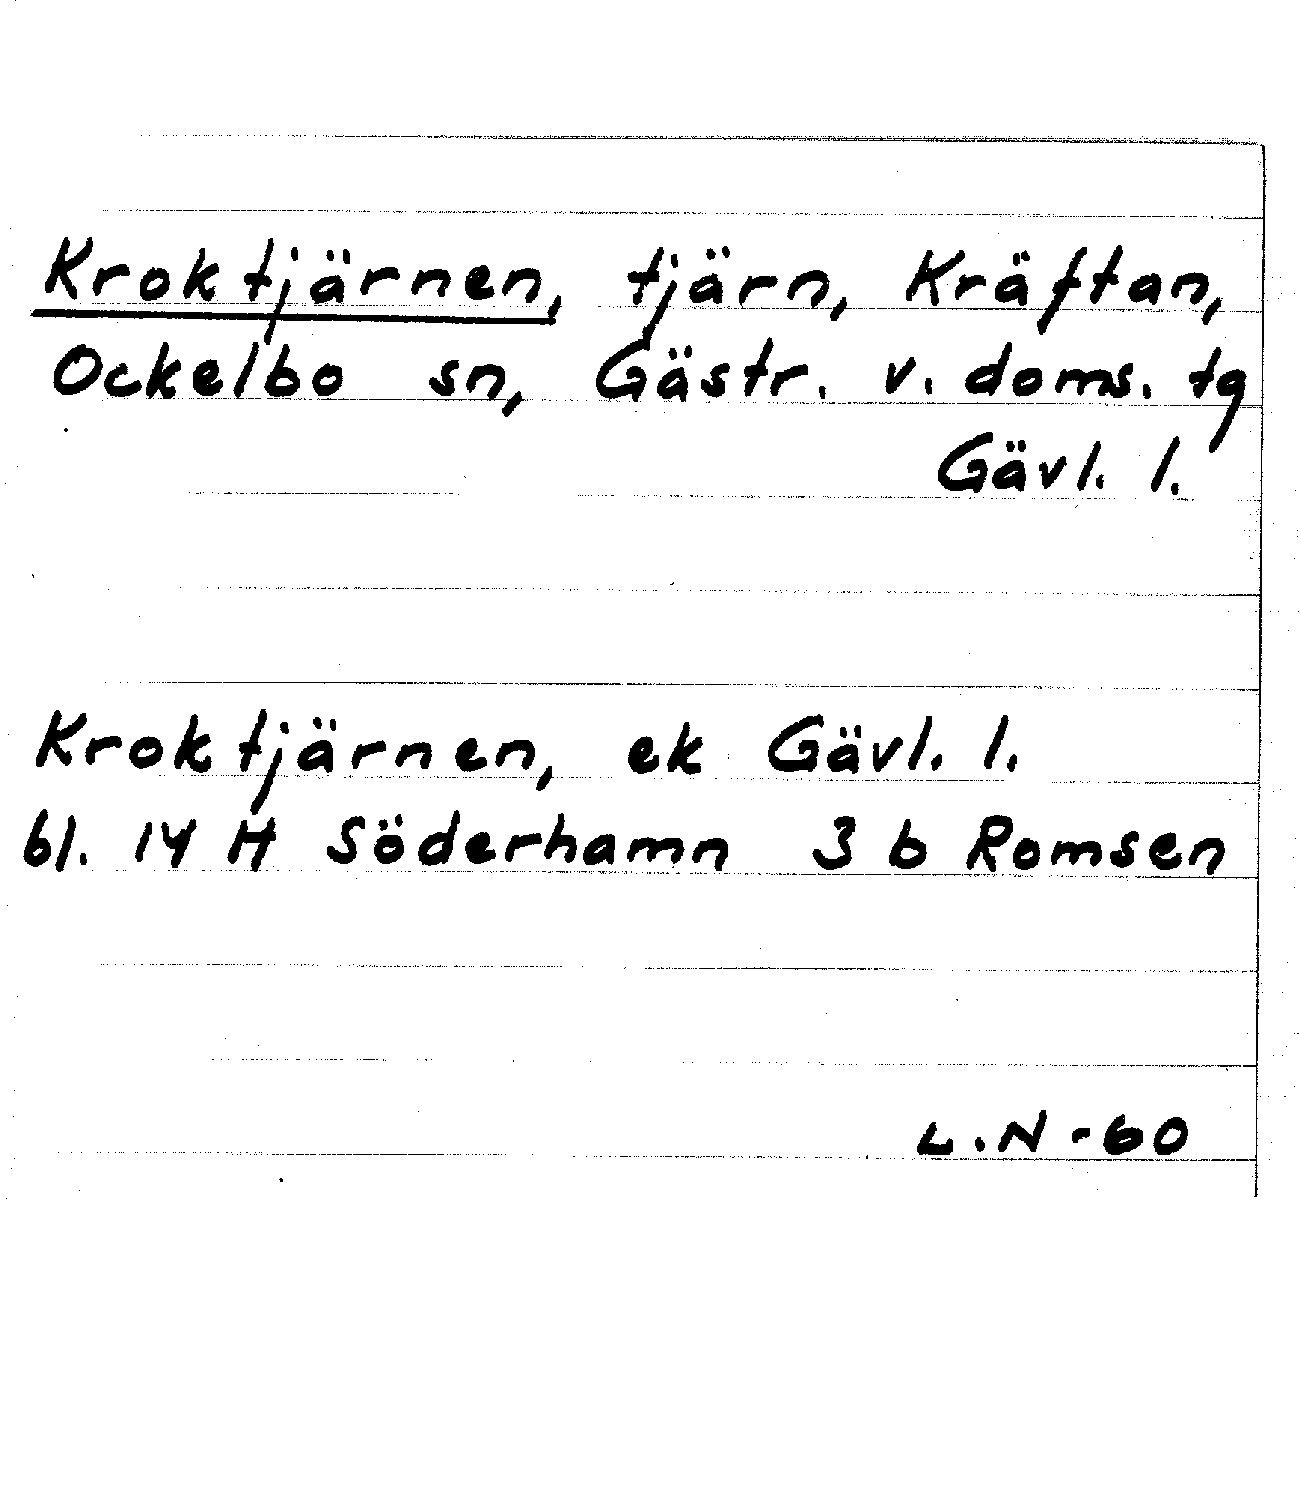 Kroktjärnen, tjärn, Kräftan,
Ockelbo sn, Gästr. v. doms. tg
Gävl. l.
Kroktjärnen, ek Gävl. l.
bl. 14 H Söderhamn 3 b Romsen
L.N-60